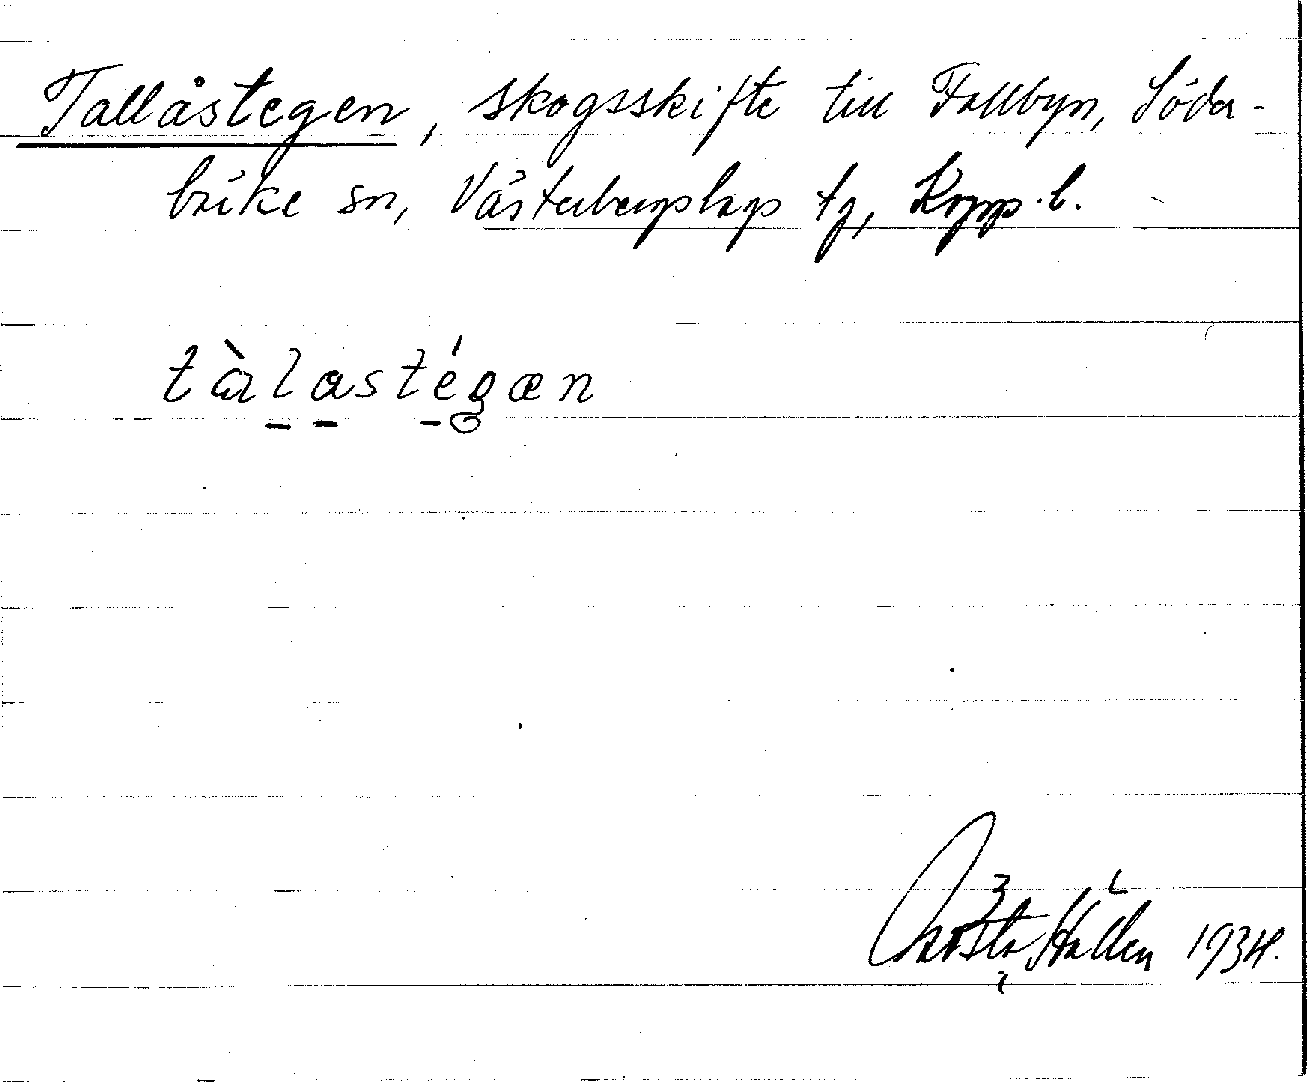 Tallåstegen, skogsskifte till Fallbyn, Söder-
bärke sn, Västerbergslags tg, Kopp. l.
tàlastégæn
Gösta Hallén 1934.